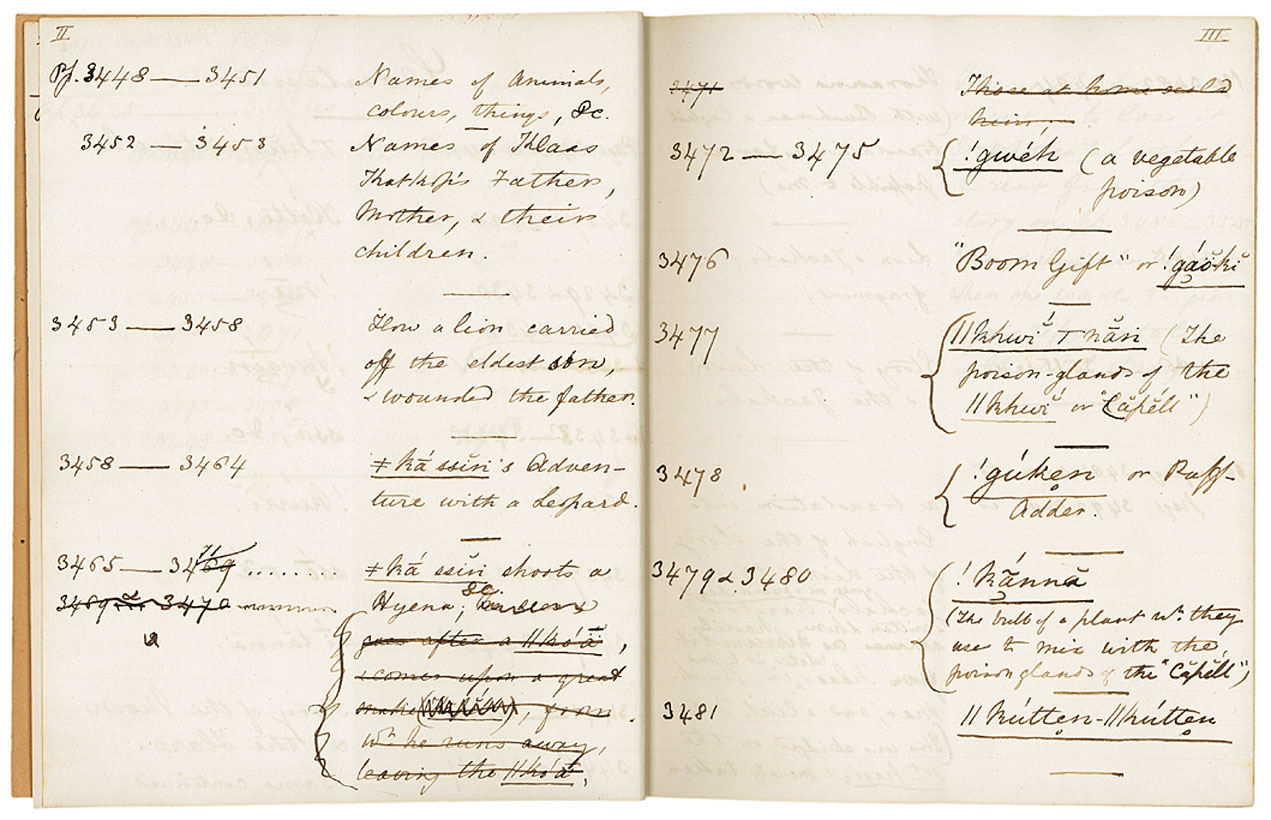 II
Pp. 3448 — 3451 Names of Animals,
colours, things, &c.
3452 — 3453 Names of Klaas
Katkop's Father,
Mother, & their
children.
3453 — 3458 How a lion carried
off the eldest son,
& wounded the father.
3458 — 3464 ǂká ssĭn's Adven-
ture with a Leopard.
3465 — 3471 ǂká ssĭn shoots a
3469 3470 Hyena; &c.
goes after a ǁkóä,
& comes upon a great
snake, from
wh. he runs away,
leaving the ǁkóä.
III
3471 Those at home scold
him,
3472 — 3475 !gwéh (a vegetable
poison)
3476 "Boom Gift" or !gáŏkĭ
3477 ǁkhwĭ ǂnăn (The
poison-glands of the
ǁkhwĭ or "Căpĕll")
3478 !gúken or Puff-
Adder.
3479 & 3480 !kănnă
(The bulb of a plant wh. they
use to mix with the
poison glands of the "Căpĕll")
3481 ǁkútten-ǁkútten